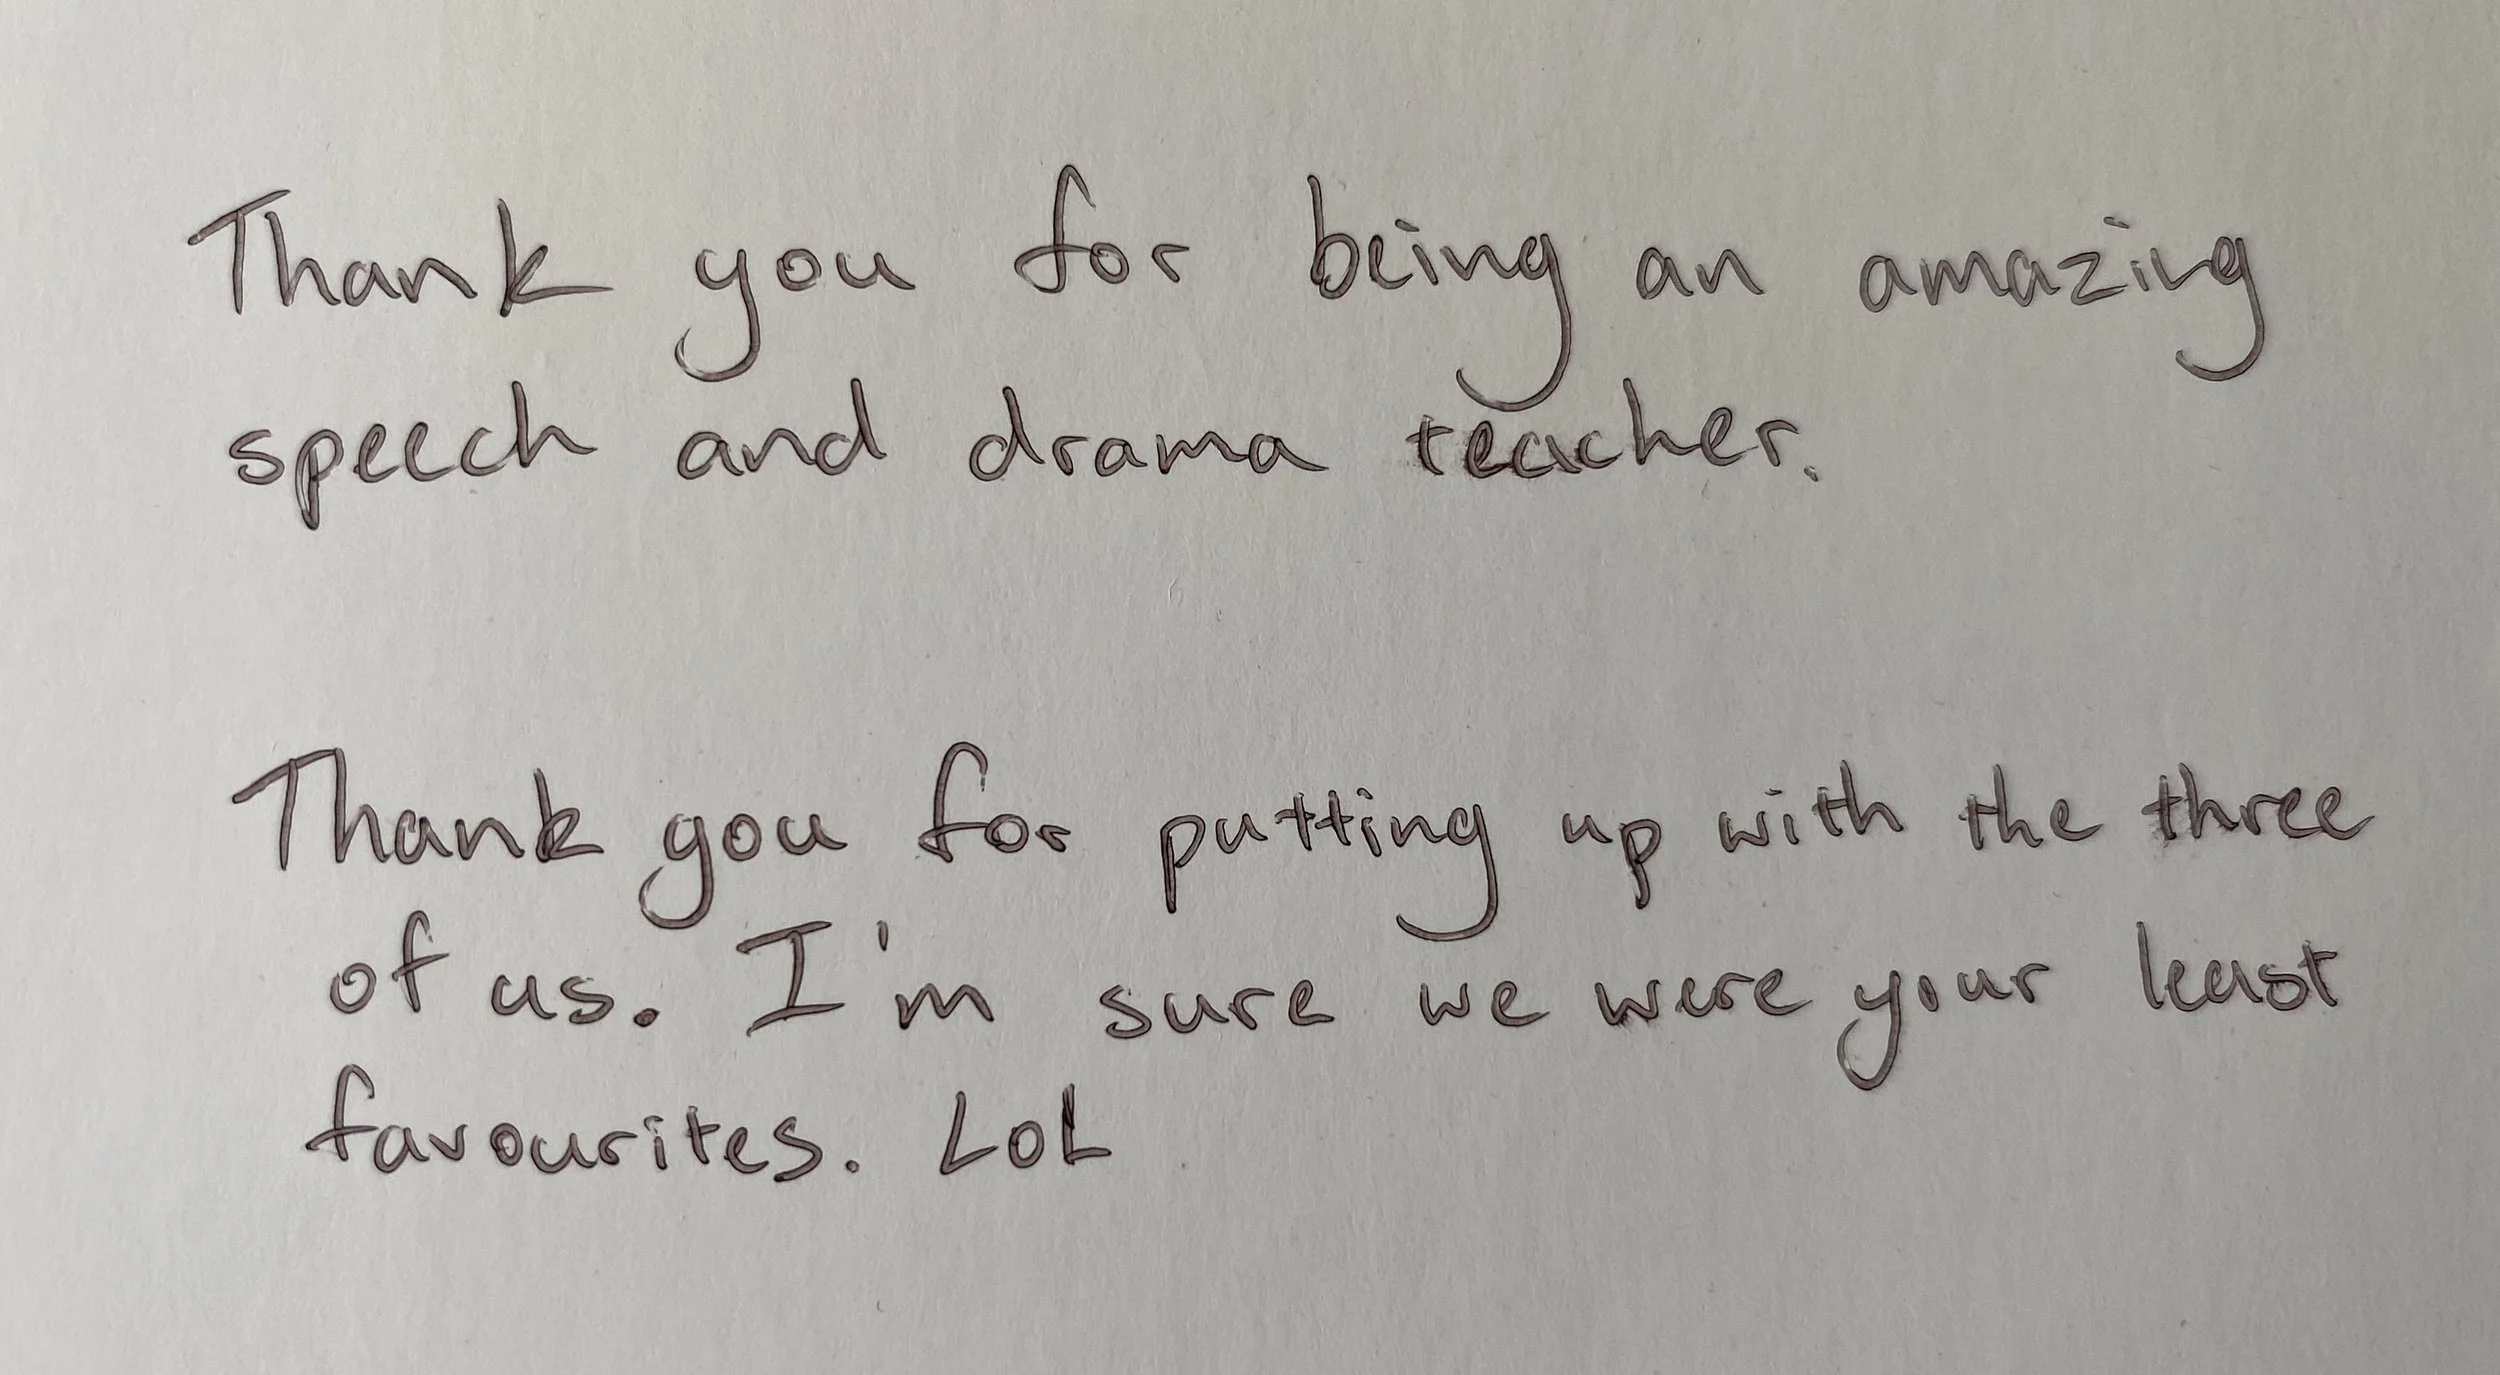 Thank you for being an amazing
speech and drama teacher.
Thank you for putting up with the three
of us. I'm sure we were your least
favourites. LoL